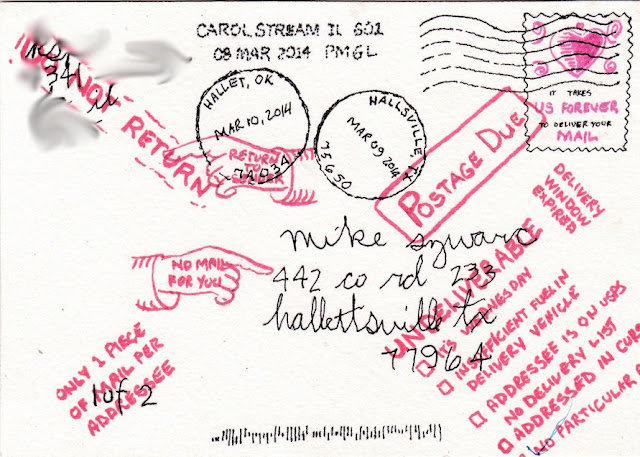 CAROL STREAM IL 601
08 MAR 2014 PMGL
IT TAKES
US FOREVER
TO DELIVER YOUR
MAIL
HALLET, OK
MAR 10, 2014
74034
HALLSVILLE, TX
MAR 09 2014
75650
WILL NOT RETURN
34
RETURN
TO
POSTAGE DUE
DELIVERY
WINDOW
EXPIRED
NO MAIL
FOR YOU
mike szwarc
442 co rd 233
hallettsville tx
77964
UNDELIVERABLE
IT'S WEDNESDAY
INSUFFICIENT FUEL IN
DELIVERY VEHICLE
ADDRESSEE IS ON USPS
NO DELIVERY LIST
ADDRESSED IN
NO PARTICULAR
ONLY 1 PIECE
OF MAIL PER
ADDRESSEE
1 of 2